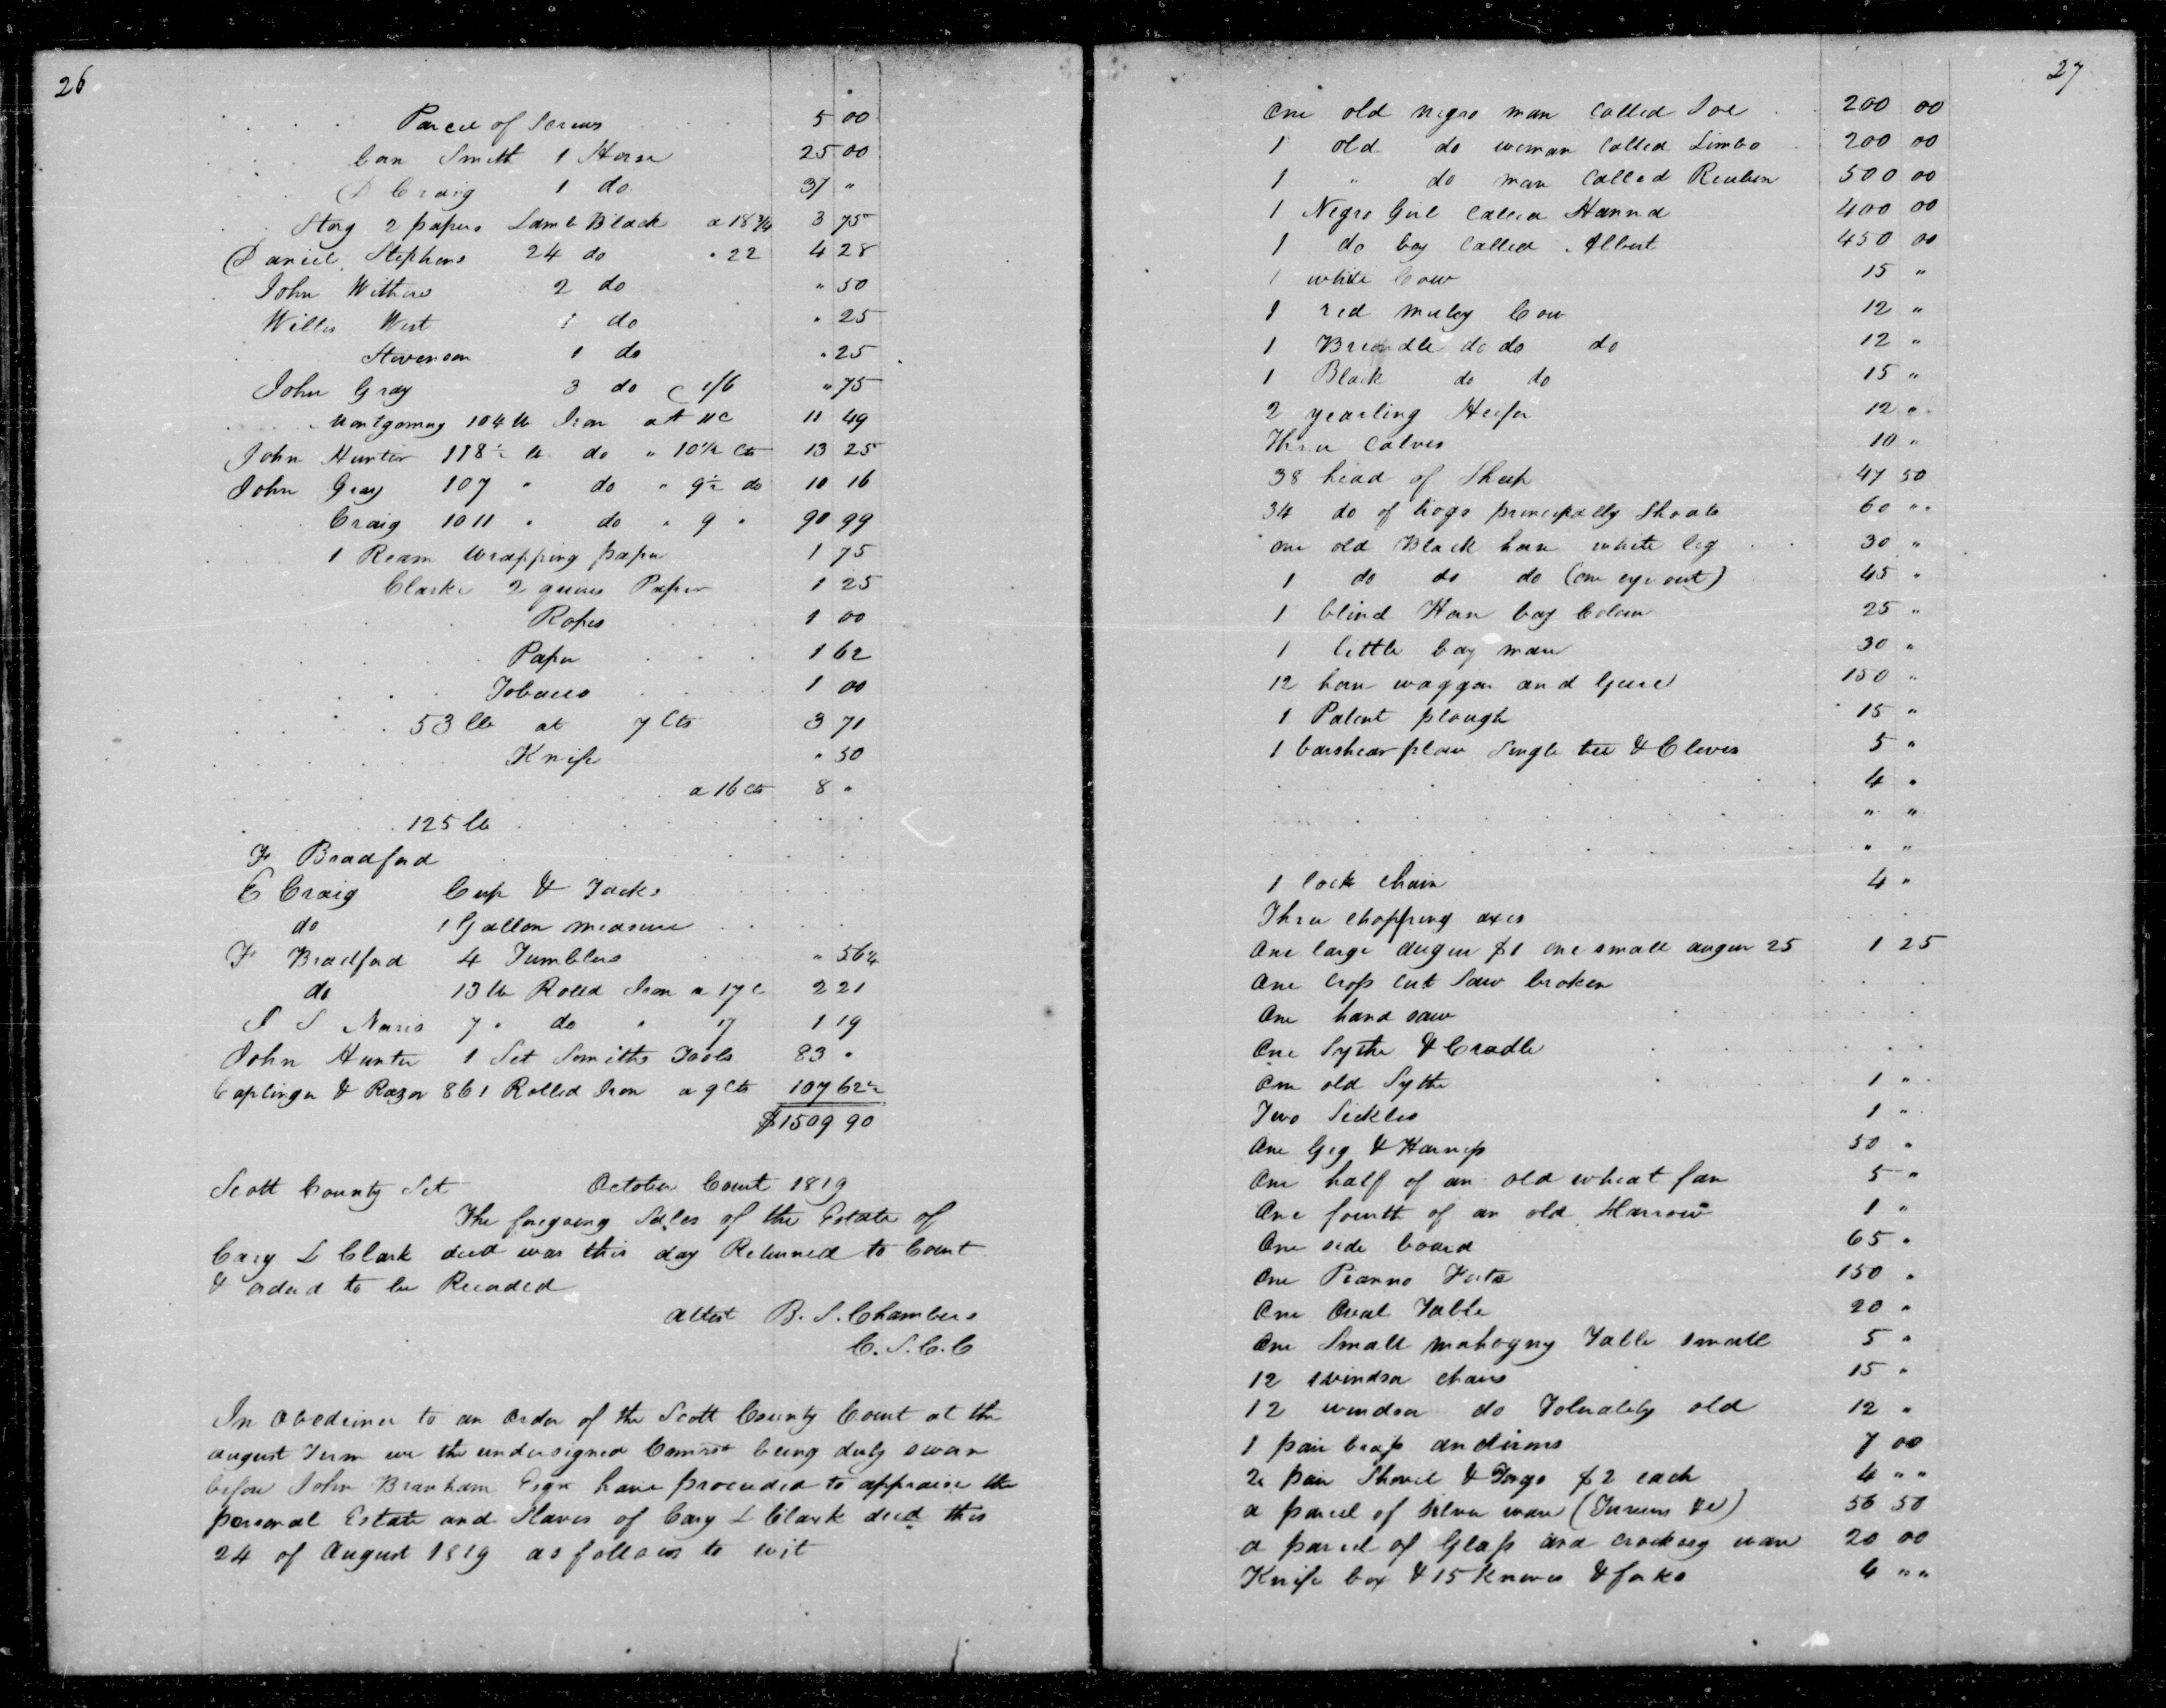 26
Parcel of Screws 5 00
Smith 1 Horse 25 00
D Craig 1 do 37 "
Stog 2 papers Lamb Black a 18 3/4 3 75
Daniel Stephens 24 do " 22 4 28
John Withers 2 do " 50
Willis West 1 do " 25
Stevenson 1 do " 25
John Gray 3 do 1/6 " 75
Montgomery 104 lb Iron at 11 c 11 49
John Hunter 118 1/2 lb do " 10 1/2 cts 13 25
John Gray 107 " do " 9 1/2 do 10 16
Craig 1011 " do " 9 " 90 99
1 Ream Wrapping paper 1 75
Clarke 2 quires Paper 1 25
Ropes 1 00
Paper 1 62
Tobacco 1 00
53 lb at 7 Cts 3 71
Knife " 50
a 16 cts 8 "
125 lb
F Bradford
E Craig Cup & Jacks
do 1 Gallon measure
F Bradford 4 Tumblers " 56 1/4
do 13 lb Rolled Iron a 17 c 2 21
7 " do " 17 1 19
John Hunter 1 Set Smiths Tools 83 "
Caplinger & Razor 861 Rolled Iron a 9 cts 107 62 1/2
$1509 90
Scott County Sct October Court 1819
The foregoing Sales of the Estate of
Cary L Clark decd was this day Returned to Court
& orderd to be Recorded
attest B. S. Chambers
C. S. C. C
In Obedience to an order of the Scott County Court at the
august Term we the undersigned Comrs being duly sworn
before John Branham Esqr have proceeded to appraise the
personal Estate and Slaves of Cary L Clark decd this
24 of August 1819 as follows to wit
27
One old negro man called Joe 200 00
1 old do woman called Limbo 200 00
1 " do man called Reuben 500 00
1 Negro Girl called Hanna 400 00
1 do boy called Albert 450 00
1 white Cow 15 "
1 red muley Cow 12 "
1 Brindle do do do 12 "
1 Black do do 15 "
2 yearling Heifer 12 "
Three Calves 10 "
38 head of Sheep 47 50
34 do of hogs principally Shoats 60 "
one old Black horse white leg 30 "
1 do do do (one eye out) 45 "
1 blind Horse bay Colour 25 "
1 little bay mare 30 "
12 horse waggon and Geare 150 "
1 Patent plough 15 "
1 barshear plow Single tree & Clevis 5 "
4 "
" "
" "
1 lock chain 4 "
Three chopping axes
One large augur $1 one small augur 25 1 25
One cross cut Saw broken
One hand saw
One Sythe & Cradle
One old Sythe 1 "
Two Sickles 1 "
One Gig & Harness 50 "
One half of an old wheat fan 5 "
One fourth of an old Harrow 1 "
One side board 65 "
One Pianno Forte 150 "
One Oval Table 20 "
One Small mahogny Table small 5 "
12 windsor chairs 15 "
12 windsor do Tolerably old 12 "
1 pair brass andirons 7 00
2 pair Shovel & Tongs $2 each 4 " "
a parcel of silver ware (Tureens &c) 56 50
a parcel of Glass and crockery ware 20 00
Knife box & 15 knives & forks 6 " "